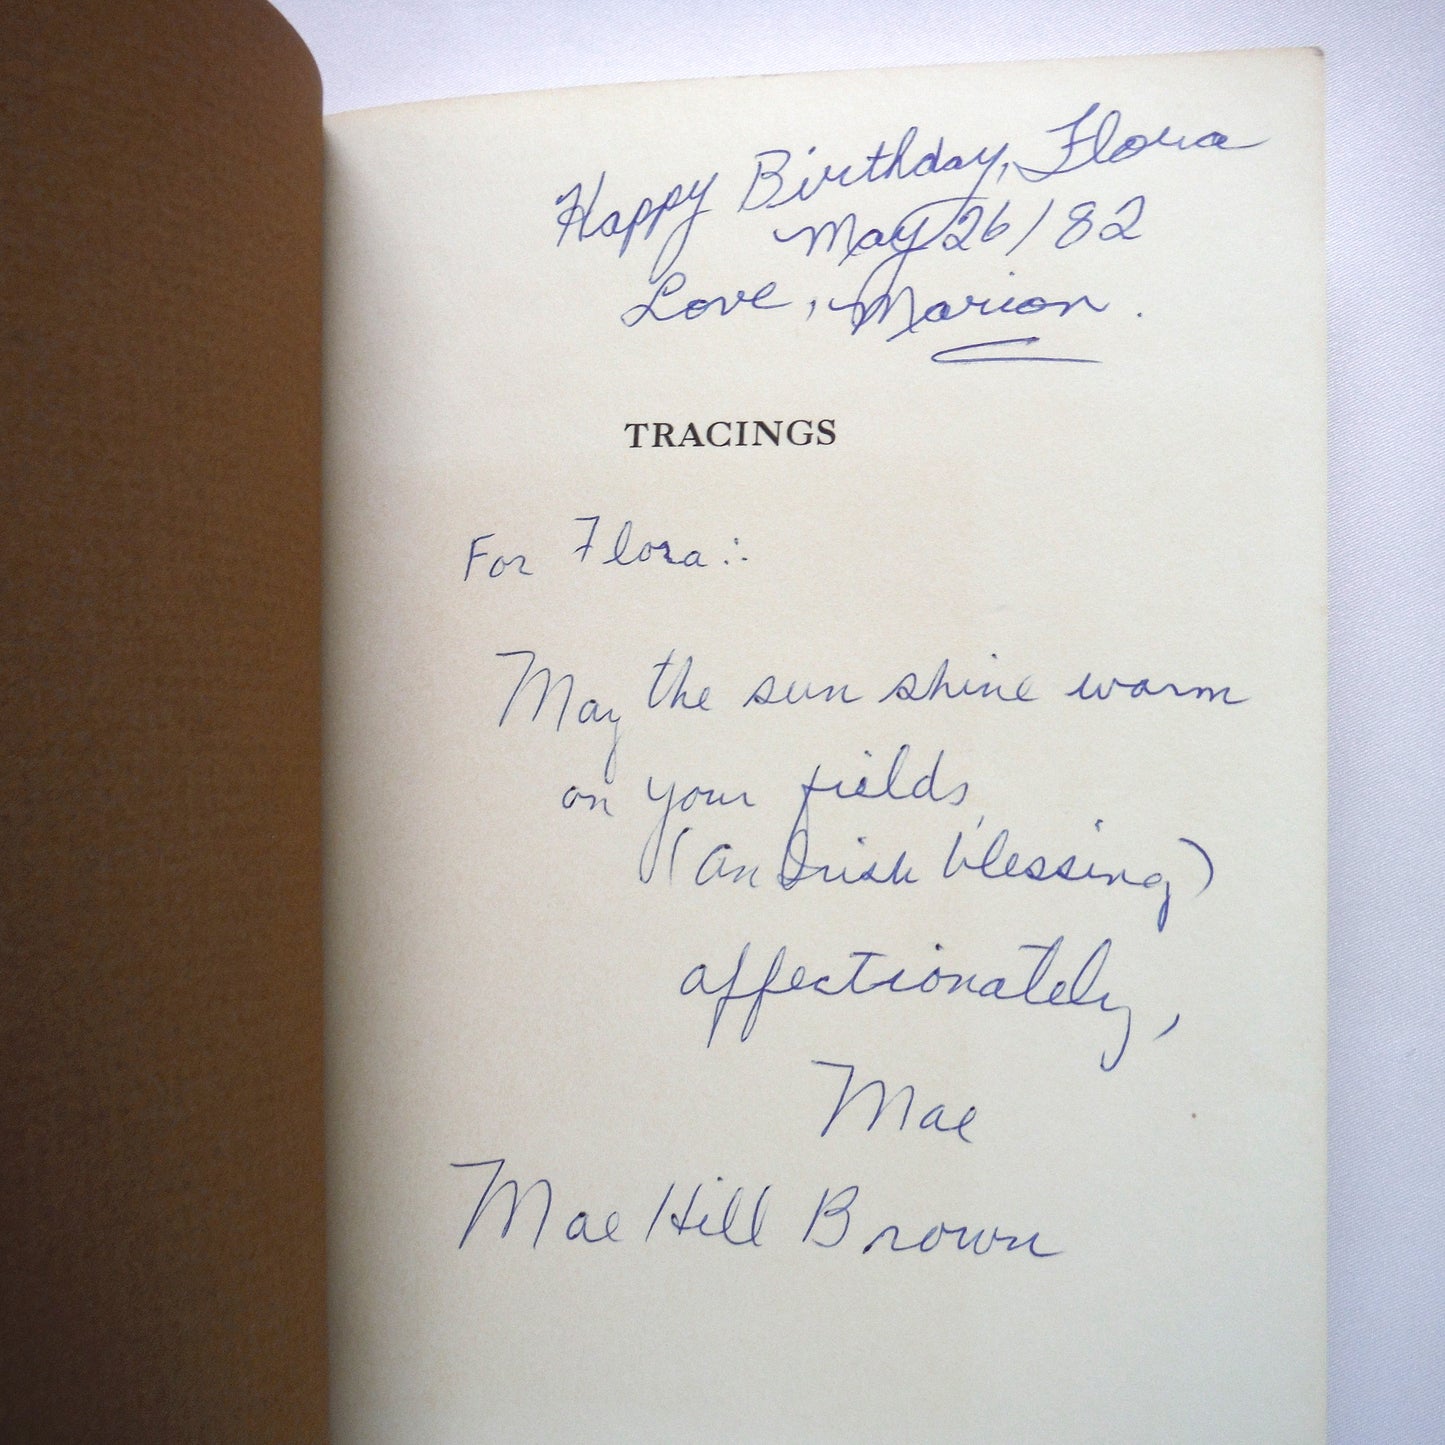 Happy Birthday, Flora
May 26/82
Love, Marion.
TRACINGS
For Flora:.
May the sun shine warm
on your fields,
(An Irish blessing)
affectionately,
Mae
Mae Hill Brown